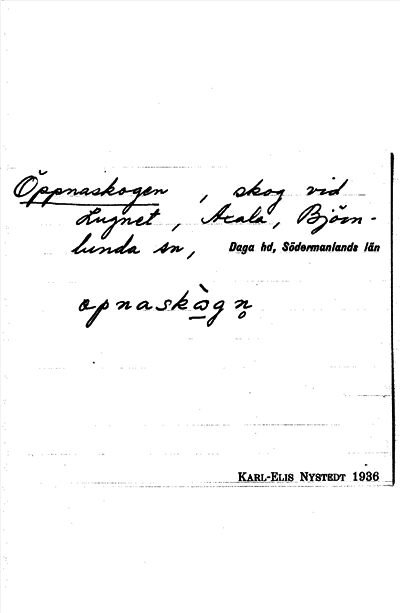 Öppnaskogen, skog vid
Lugnet, Axala, Björn-
lunda sn, Daga hd, Södermanlands län
öpnaskògn̥
KARL-ELIS NYSTEDT 1936